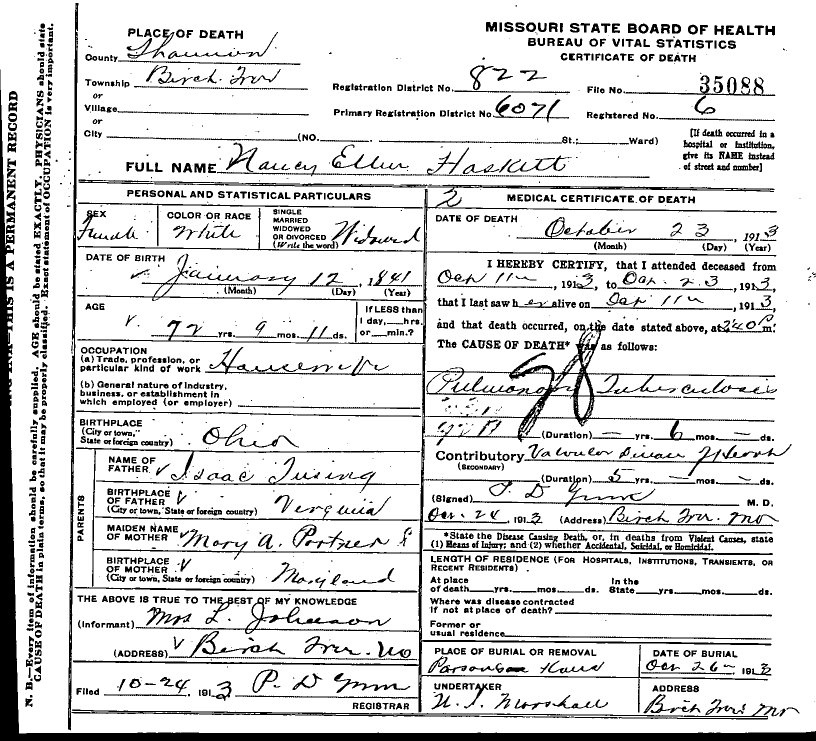 MISSOURI STATE BOARD OF HEALTH
BUREAU OF VITAL STATISTICS
CERTIFICATE OF DEATH
PLACE OF DEATH
County Shannon
Township Birch Tree
or
Village
or
City (NO. St.; Ward)
Registration District No. 822 File No. 35088
Primary Registration District No. 6071 Registered No. 6
[If death occurred in a
hospital or institution,
give its NAME instead
of street and number]
FULL NAME Nancy Ellen Haskett
PERSONAL AND STATISTICAL PARTICULARS
SEX Female
COLOR OR RACE White
SINGLE
MARRIED
WIDOWED
OR DIVORCED
(Write the word) Widowed
DATE OF BIRTH
January 12, 1841
(Month) (Day) (Year)
AGE
72 yrs. 9 mos. 11 ds.
If LESS than
1 day, hrs.
or min.?
OCCUPATION
(a) Trade, profession, or
particular kind of work Housewife
(b) General nature of industry,
business, or establishment in
which employed (or employer)
BIRTHPLACE
(City or town,
State or foreign country) Ohio
PARENTS
NAME OF
FATHER Isaac Tusing
BIRTHPLACE
OF FATHER
(City or town, State or foreign country) Virginia
MAIDEN NAME
OF MOTHER Mary A.
BIRTHPLACE
OF MOTHER
(City or town, State or foreign country) Maryland
THE ABOVE IS TRUE TO THE BEST OF MY KNOWLEDGE
(Informant) Mrs L. Johnson
(ADDRESS) Birch Tree. Mo
Filed 10-24, 1913 P. D
REGISTRAR
2 MEDICAL CERTIFICATE OF DEATH
DATE OF DEATH
October 23, 1913
(Month) (Day) (Year)
I HEREBY CERTIFY, that I attended deceased from
Oct 11th, 1913, to Oct. 23, 1913,
that I last saw her alive on Oct 11th, 1913
and that death occurred, on the date stated above, at 2 40 P m.
The CAUSE OF DEATH* was as follows:
Pulmonary Tuberculosis
(Duration) — yrs. 6 mos. — ds.
Contributory Valvular Disease of Heart
(SECONDARY)
(Duration) 5 yrs. — mos. — ds.
(Signed) P. D M. D.
Oct. 24, 1913 (Address) Birch Tree. Mo
*State the Disease Causing Death, or, in deaths from Violent Causes, state
(1) Means of Injury; and (2) whether Accidental, Suicidal, or Homicidal.
LENGTH OF RESIDENCE (FOR HOSPITALS, INSTITUTIONS, TRANSIENTS, OR
RECENT RESIDENTS)
At place In the
of death yrs. mos. ds. State yrs. mos. ds.
Where was disease contracted
if not at place of death?
Former or
usual residence
PLACE OF BURIAL OR REMOVAL
DATE OF BURIAL
Oct 26th, 1913
UNDERTAKER
Marshall
ADDRESS
Birch Tree Mo
N. B.—Every item of information should be carefully supplied. AGE should be stated EXACTLY. PHYSICIANS should state
CAUSE OF DEATH in plain terms, so that it may be properly classified. Exact statement of OCCUPATION is very important.
THIS IS A PERMANENT RECORD